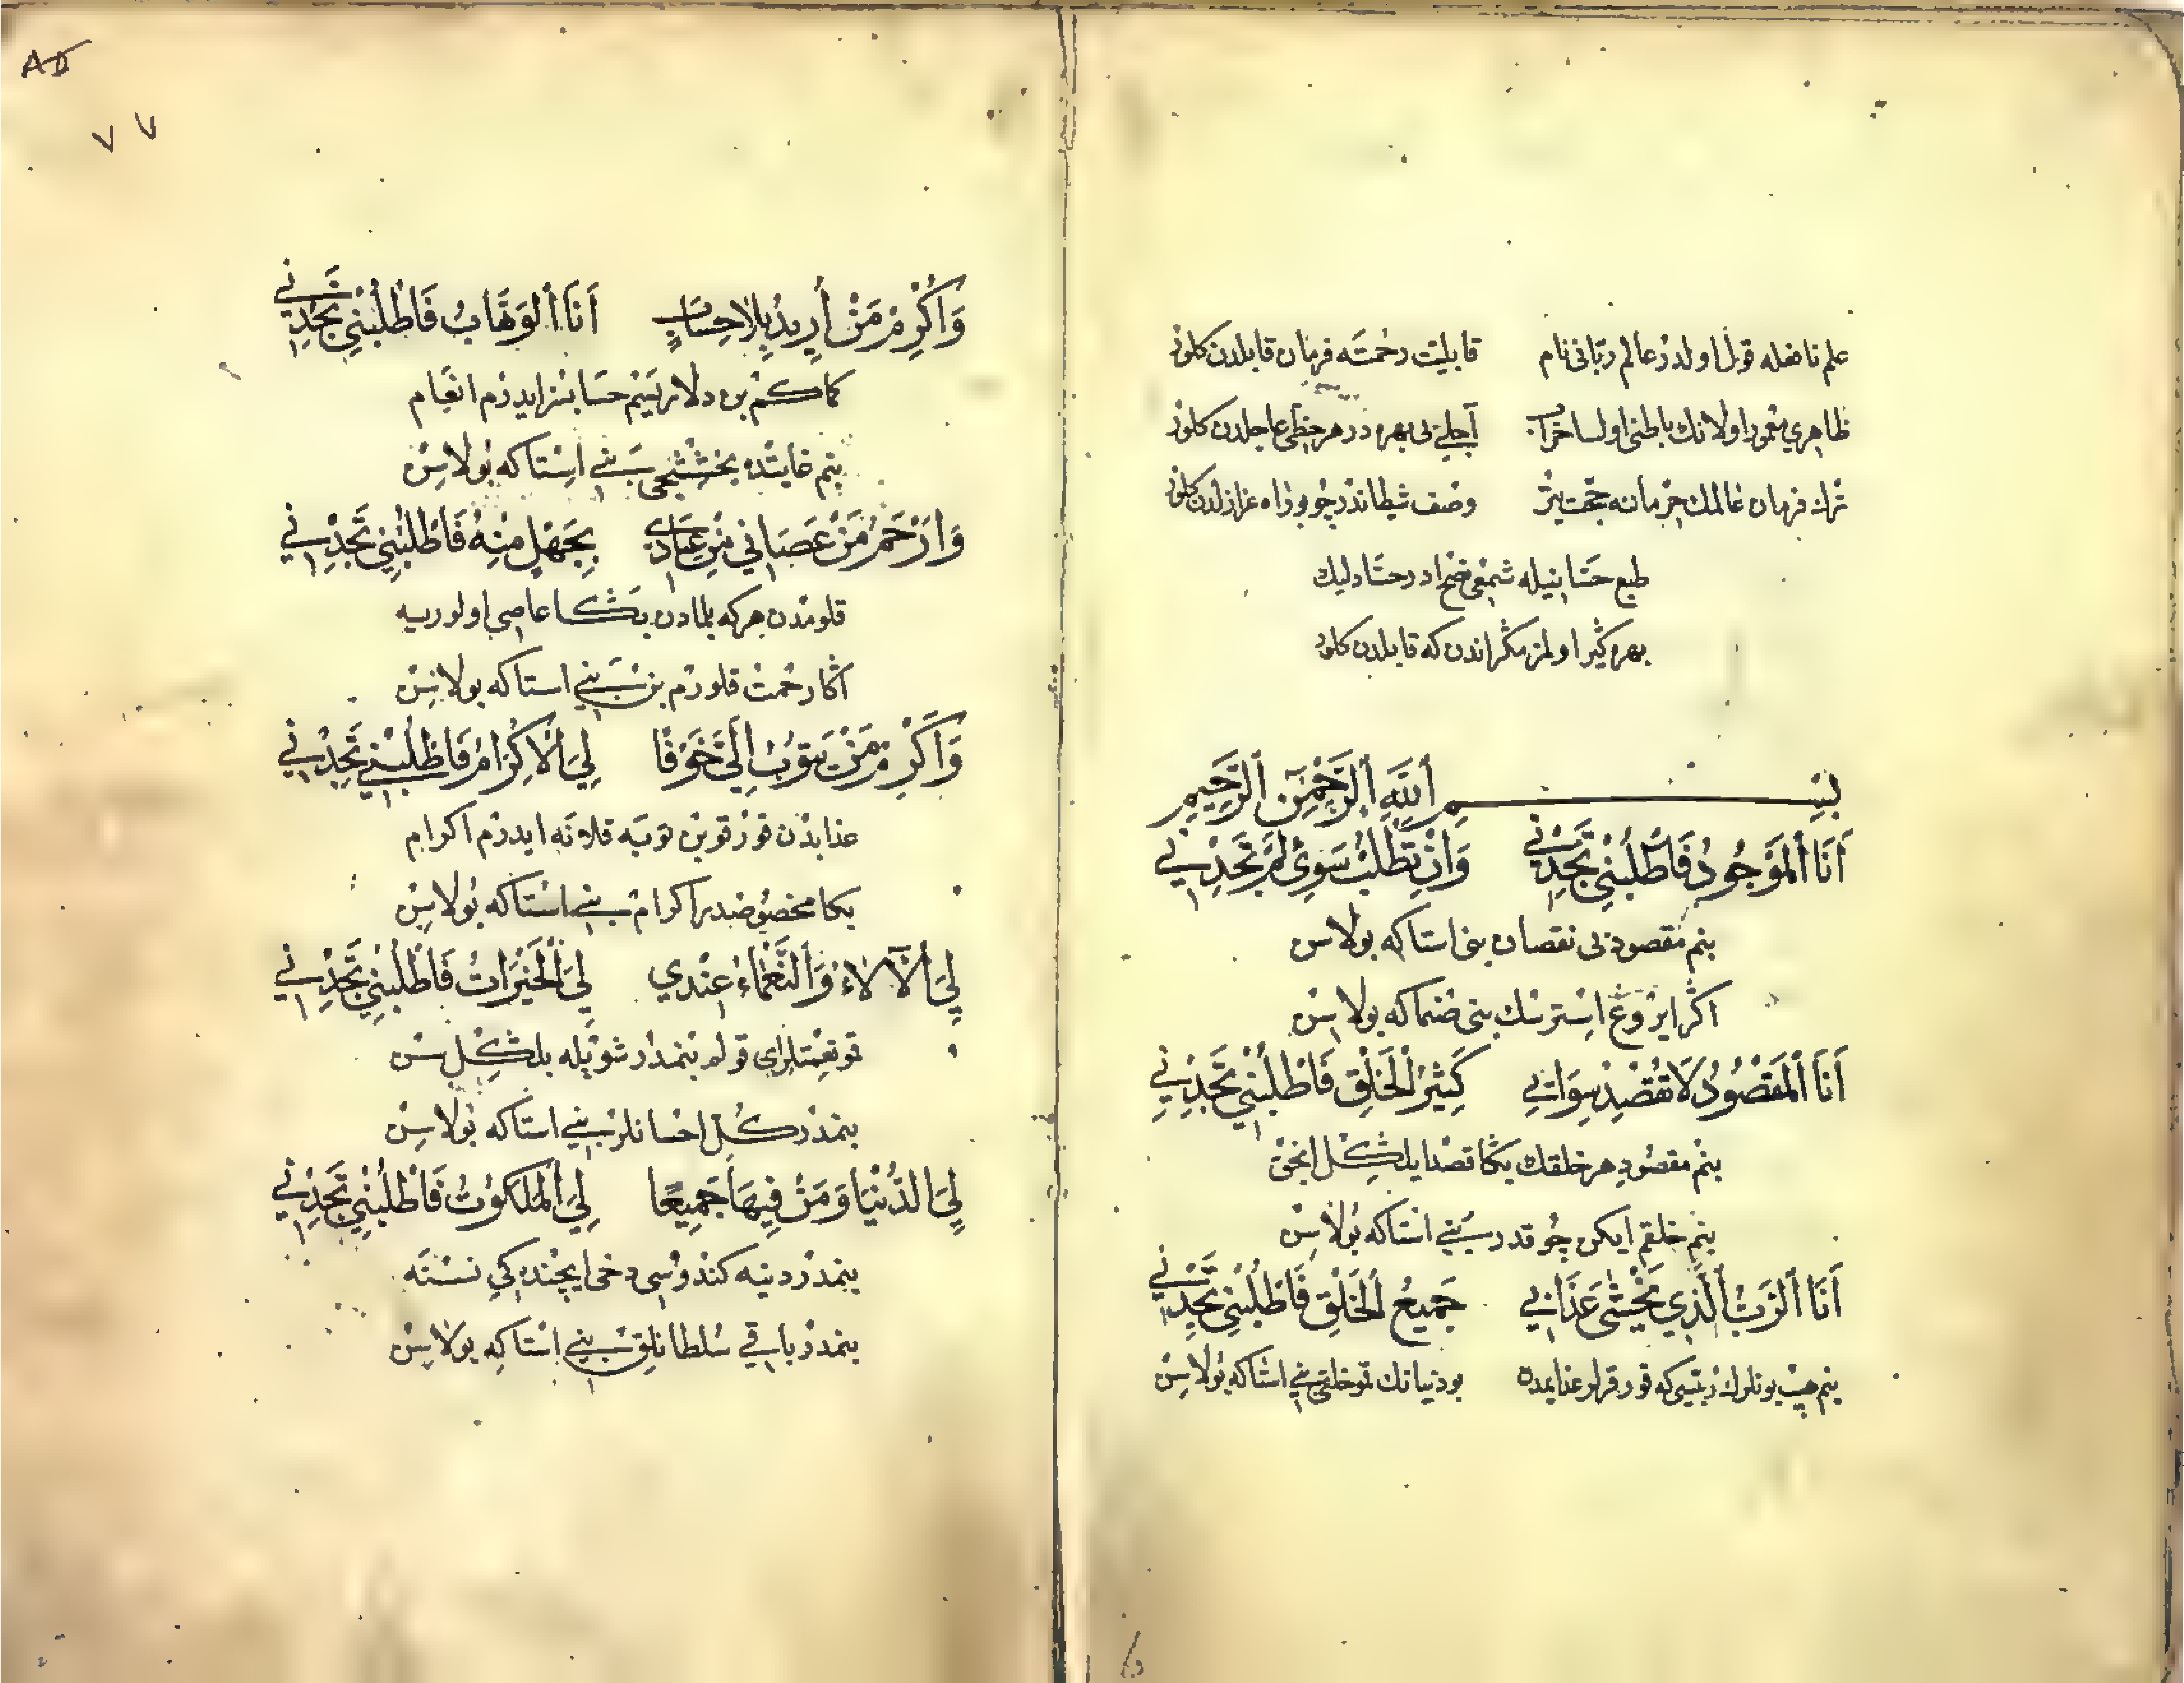 علم نافعله قول اولدر عالم ربانی نام قابلیت رحمته فرمان قابلدن کلور
ظاهری معمور اولانك باطنی اولسا خراب آجلی بی بهره در هر حظی عاجلدن کلور
ترك فرمان عالمك حرمانه حجت یتر وصف شیطاندر چو بو راه عزازلدن کلور
طبع حسا
بهره کیر اولمز مکر اندن که قابلدن کلور
بِسْمِ أللهِ ألرَّحْمٰنِ ألرَّحِيمِ
أَنَا ألْمَوْجُودُ فَاطْلُبْنِي تَجِدْنِي وَانْ تَطْلُبْ سَوِئ لَمْ تَجِدْنِي
بنم مقصود بی نقصان بنی استا که بولاسن
اكر ایروغ استرسك بنی صنما که بولاسن
أَنَا ألْمَقْصُودُ لَا تَقْصِدْ سِوَائِي كَثِيرُ ألْخَلْقِ فَاطْلُبْنِي تَجِدْنِي
بنم مقصود هر خلقك بكا قصد ایله كل انجق
بنم خلقم ایکن چوقدر بنی استا که بولاسن
أَنَا ألرَّبُّ ألَّذِي يَخْشَى عَذَابِي جَمِيعُ ألْخَلْقِ فَاطْلُبْنِي تَجِدْنِي
بنم هپ بونلرك ربسی که قورقرلر عذابمدن بو دنیانك قمو خلقی بنی استا که بولاسن
٧٧
وَأُكْرِمُ مَنْ أُرِيدُ بِلَا حِسَابٍ أَنَا ألْوَهَّابُ فَاطْلُبْنِي تَجِدْنِي
كما كم بن دلاریسم حسابسز ایدرم انعام
بنم غایتده بخششجی بنی استا که بولاسن
وَارْحَمُ مَنْ عَصَانِي مِنْ عِبَادِي بِجَهْلٍ مِنْهُ فَاطْلُبْنِي تَجِدْنِي
قلومدن هر که بلمادن بكا عاصی اولوریسه
اكا رحمت قلورم بن بنی استا که بولاسن
وَأُكْرِمُ مَنْ يَتُوبُ إِلَيَّ خَوْفًا لِيَ ألْاكْرَامُ فَاطْلُبْنِي تَجِدْنِي
عذابدن قورقوبن توبه قلانه ایدرم اکرام
بكا مخصوصدر اکرام بنی استا که بولاسن
لِيَ ألْآلَاءُ وَألنَّعْمَاءُ عِنْدِي لِيَ ألْخَيْرَاتُ فَاطْلُبْنِي تَجِدْنِي
قو نعمتلرای قولم بنمدر شویله بلكل سن
بنمدر کل احسانلر بنی استا که بولاسن
لِيَ ألدُّنْيَا وَمَنْ فِيهَا جَمِيعًا لِيَ ألْمَلَكُوتُ فَاطْلُبْنِي تَجِدْنِي
بنمدر دنیه کندوسی دخی ایچنده کی نسنه
بنمدر باقی سلطانلق بنی استا که بولاسن